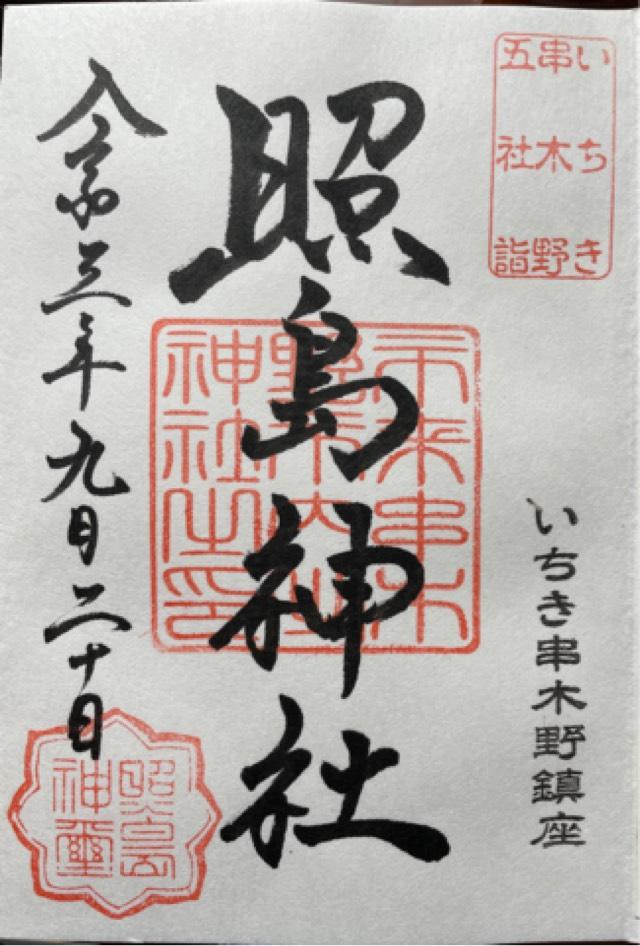 いちき
串木野
五社詣
いちき串木野鎮座
照島神社
令和三年九月二十日
照島
神璽